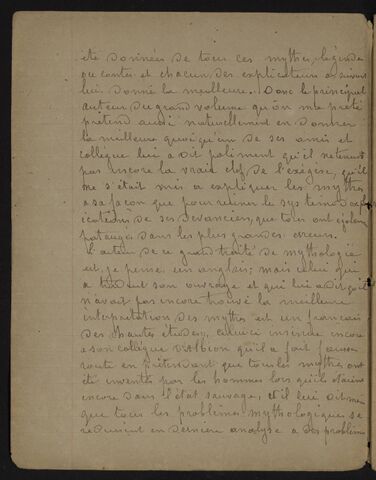 été données de tous ces mythes, légendes
ou contes et chacun des explicateurs a suivant
lui donné la meilleure. Donc le principal
auteur du grand volume qu'on me prete
prétend aussi naturellement en donner
la meilleure quoiqu'un de ses amis et
collègue lui a dit poliment qu'il ne tenait
pas encore la vraie clef de l'exégèse, qu'il
ne s'était mis a expliquer les mythes
a sa façon que pour ruiner le systeme d'expli
cations de ses devanciers, que tous ont également
patauger dans les plus grandes erreurs.
L'auteur de ce grand traité de mythologie
est, je pense, un anglais; mais celui qui
a traduit son ouvrage et qui lui a dit qu'il
n'avait pas encore trouvé la meilleure
interprétation des mythes est un français
des hautes études, celui-ci insinue encore
a son collègue d'Albion qu'il a fait fausse
route en prétendant que tous les mythes ont
été inventés par les hommes lors qu'ils étaient
encore dans l'état sauvage, et il lui dit même
que tous les problèmes mythologiques se
reduisent en dernière analyse a des problème